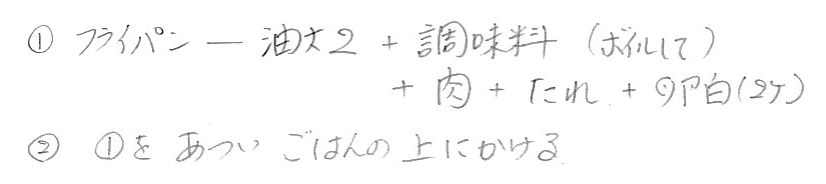 ① フライパン ― 油大2 + 調味料 (ボイルして)
+ 肉 + たれ + 卵白(2ケ)
② ①を あつい ごはんの 上にかける